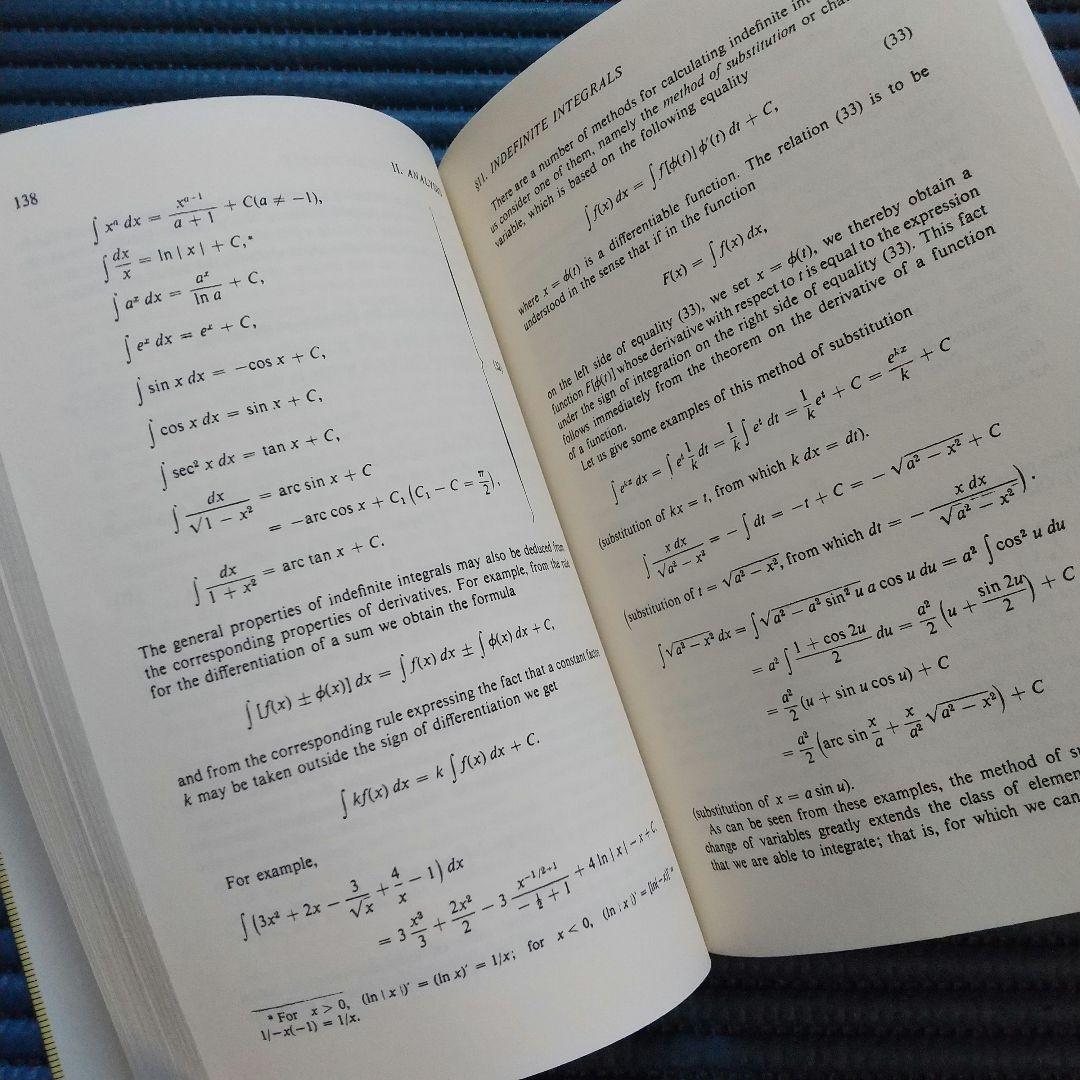 138
II. ANALYSIS
∫ xᵃ dx = xᵃ⁻¹/(a + 1) + C(a ≠ −1),
∫ dx/x = ln | x | + C,*
∫ aˣ dx = aˣ/ln a + C,
∫ eˣ dx = eˣ + C,
∫ sin x dx = −cos x + C,
∫ cos x dx = sin x + C,
∫ sec² x dx = tan x + C,
∫ dx/√(1 − x²) = arc sin x + C
= −arc cos x + C₁ (C₁ − C = π/2),
∫ dx/(1 + x²) = arc tan x + C.
The general properties of indefinite integrals may also be deduced from
the corresponding properties of derivatives. For example, from the rule
for the differentiation of a sum we obtain the formula
∫ [f(x) ± ϕ(x)] dx = ∫ f(x) dx ± ∫ ϕ(x) dx + C,
and from the corresponding rule expressing the fact that a constant factor
k may be taken outside the sign of differentiation we get
∫ kf(x) dx = k ∫ f(x) dx + C.
For example,
∫ (3x² + 2x − 3/√x + 4/x − 1) dx
= 3 x³/3 + 2x²/2 − 3 x⁻¹/²⁺¹/(−½ + 1) + 4 ln | x | − x + C.
* For x > 0, (ln | x |)′ = (ln x)′ = 1/x; for x < 0, (ln | x |)′ = [ln(−x)]′ =
1/−x(−1) = 1/x.
§11. INDEFINITE INTEGRALS
There are a number of methods for calculating indefinite
us consider one of them, namely the method of substitution or
variable, which is based on the following equality
∫ f(x) dx = ∫ f[ϕ(t)] ϕ′(t) dt + C, (33)
where x = ϕ(t) is a differentiable function. The relation (33) is to be
understood in the sense that if in the function
F(x) = ∫ f(x) dx,
on the left side of equality (33), we set x = ϕ(t), we thereby obtain a
function F[ϕ(t)] whose derivative with respect to t is equal to the expression
under the sign of integration on the right side of equality (33). This fact
follows immediately from the theorem on the derivative of a function
of a function.
Let us give some examples of this method of substitution
∫ eᵏˣ dx = ∫ eᵗ 1/k dt = 1/k ∫ eᵗ dt = 1/k eᵗ + C = eᵏˣ/k + C
(substitution of kx = t, from which k dx = dt).
∫ x dx/√(a² − x²) = − ∫ dt = −t + C = − √(a² − x²) + C
(substitution of t = √(a² − x²), from which dt = − x dx/√(a² − x²)).
∫ √(a² − x²) dx = ∫ √(a² − a² sin² u) a cos u du = a² ∫ cos² u du
= a² ∫ (1 + cos 2u)/2 du = a²/2 (u + sin 2u/2) + C
= a²/2 (u + sin u cos u) + C
= a²/2 (arc sin x/a + x/a² √(a² − x²)) + C
(substitution of x = a sin u).
As can be seen from these examples, the method of
change of variables greatly extends the class of
that we are able to integrate; that is, for which we can